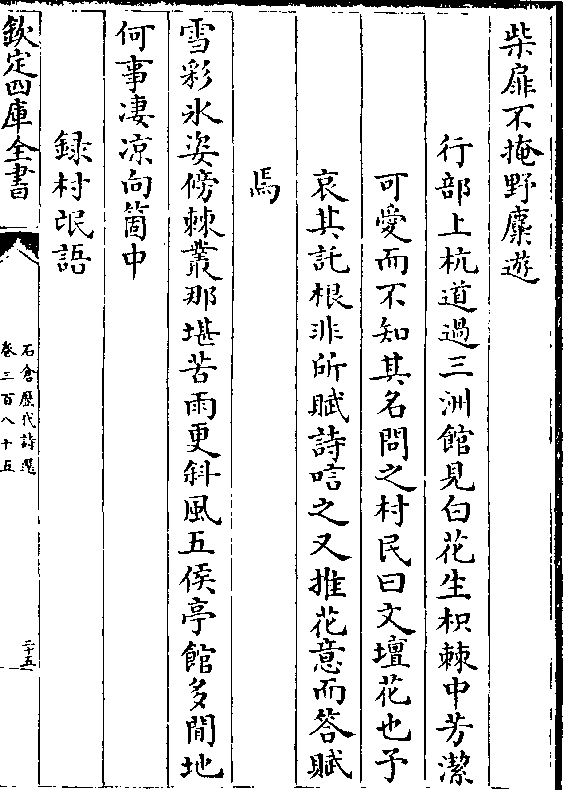 柴扉不掩野麋遊
行部上杭道過三洲館見白花生枳棘中芳潔
可愛而不知其名問之村民曰文壇花也予
哀其託根非所賦詩唁之又推花意而答賦
焉
雪彩氷姿傍棘叢那堪苦雨更斜風五侯亭館多閒地
何事凄凉向箇中
録村氓語
欽定四庫全書
石倉歷代詩選
卷三百八十五
二十五